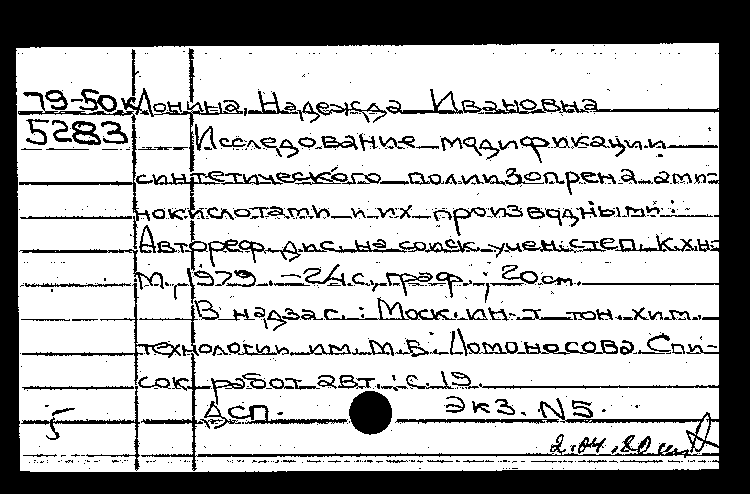 79-50к Лонина, Надежда Ивановна
5283 Исследование модификации
синтетического полиизопрена ами-
нокислотами и их производными:
Автореф. дис. на соиск. учен. степ. к.х.н.
М., 1979. -24 с., граф.; 20 см.
В надзаг.: Моск. ин-т тон. хим.
технологии им. М.В. Ломоносова. Спи-
сок работ авт.: с. 19.
ДСП. Экз. N5.
5
2.04.80